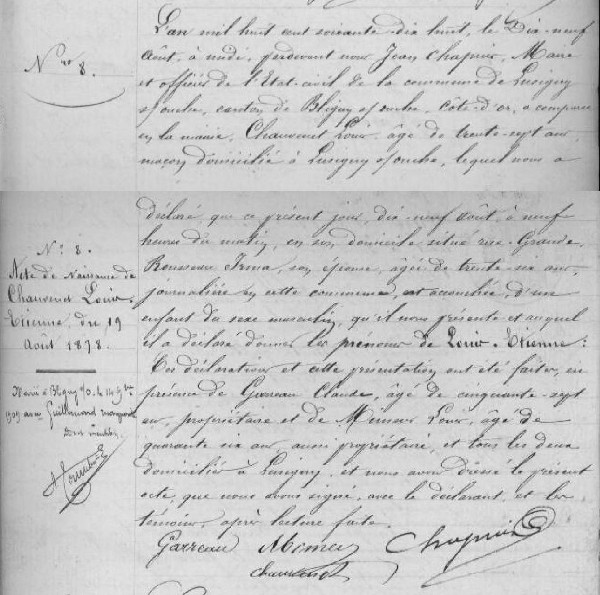 Nro 8.
L'an mil huit cent soixante-dix huit, le Dix-neuf
Août, à midi, pardevant nous Jean Chapuis, Maire
et officier de l'Etat-civil de la commune de Lusigny
s/ouche, canton de Bligny s/ouche, Côte-d'or, a comparu
en la mairie, Chauvenet Louis, âgé de trente-sept ans,
maçon domicilié à Lusigny s/ouche, lequel nous a
déclaré, que ce présent jour, dix-neuf août, à neuf
heures du matin, en son domicile situé rue Grande,
Rousseau Irma, son épouse, âgée de trente-six ans,
journalière en cette commune, est accouchée, d'un
enfant du sexe masculin, qu'il nous présente et auquel
il a déclaré donner les prénoms de Louis-Etienne:
Ces déclaration et cette présentation ont été faites, en
présence de Garreau Claude, âgé de cinquante-sept
ans, propriétaire et de Louis, âgé de
quarante six ans, aussi propriétaire, et tous les deux
domiciliés à Lusigny, et nous avons dressé le présent
acte, que nous avons signé, avec le déclarant, et les
témoins, après lecture faite.
N° 8.
Acte de Naissance de
Chauvenet Louis-
Etienne, du 19
Août 1878.
Marié à Bligny s/o le 14 9bre
1909 avec Guillemard
Garreau Chapuis
Chauvenet